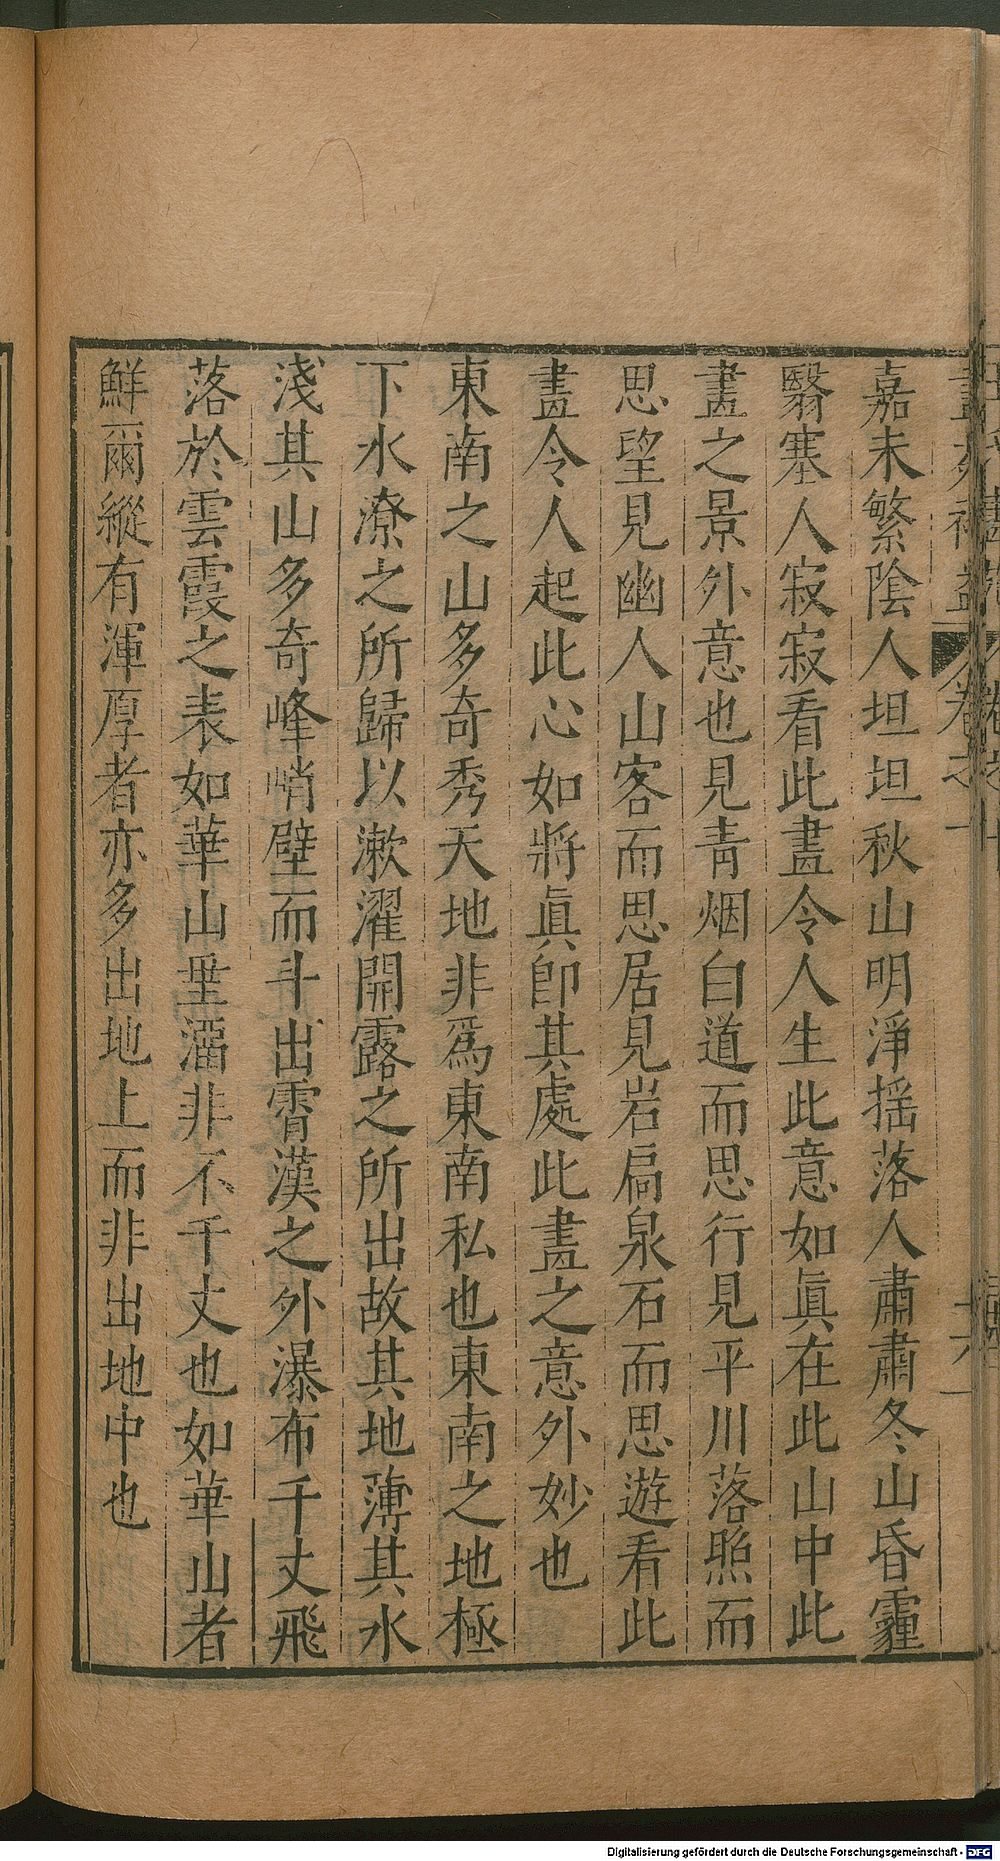 嘉未繁陰人坦坦秋山明淨揺落人肅肅冬山昏霾
翳塞人寂寂看此畫令人生此意如眞在此山中此
畫之景外意也見青烟白道而思行見平川落照而
思望見幽人山客而思居見岩扃泉石而思遊看此
畫令人起此心如將眞卽其處此畫之意外妙也
東南之山多奇秀天地非爲東南私也東南之地極
下水潦之所歸以漱濯開露之所出故其地薄其水
淺其山多奇峰峭壁而斗出霄漢之外瀑布千丈飛
落於雲霞之表如華山垂溜非不千丈也如華山者
鮮爾縱有渾厚者亦多出地上而非出地中也
Digitalisierung gefördert durch die Deutsche Forschungsgemeinschaft - DFG